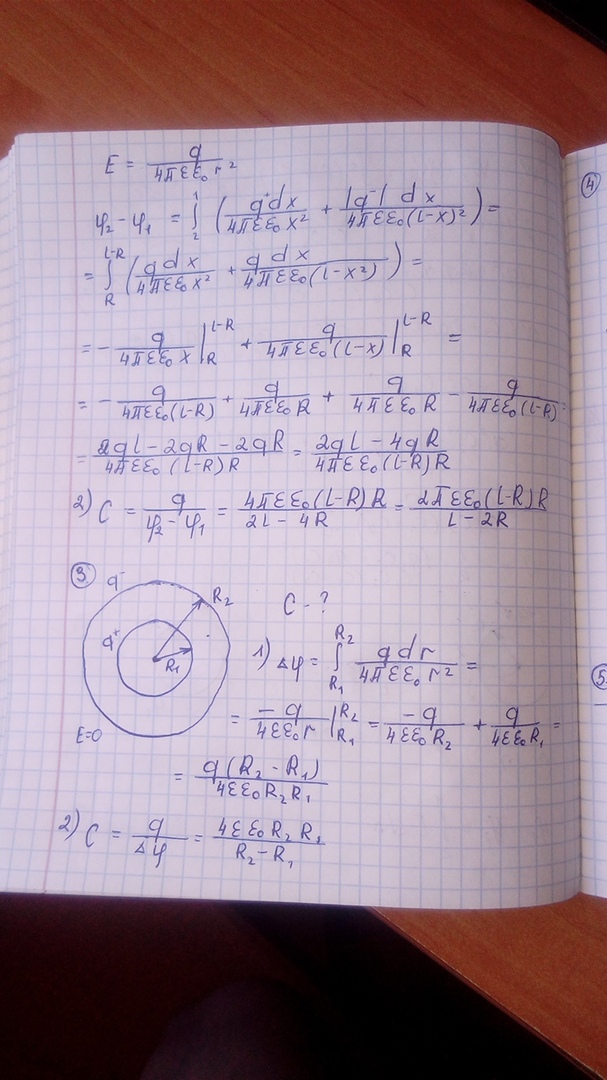 E = q / 4πεε₀r²
φ₂ − φ₁ = ∫₂¹ (q⁺dx / 4πεε₀x² + |q⁻| dx / 4πεε₀(l−x)²) =
= ∫_R^{l−R} (q dx / 4πεε₀x² + q dx / 4πεε₀(l−x²)) =
= − q / 4πεε₀x |_R^{l−R} + q / 4πεε₀(l−x) |_R^{l−R} =
= − q / 4πεε₀(l−R) + q / 4πεε₀R + q / 4πεε₀R − q / 4πεε₀(l−R) =
= 2ql − 2qR − 2qR / 4πεε₀(l−R)R = 2ql − 4qR / 4πεε₀(l−R)R
2) C = q / φ₂ − φ₁ = 4πεε₀(l−R)R / 2l − 4R = 2πεε₀(l−R)R / l − 2R
③ q⁻ R₂ C − ?
q⁺ R₁
E=0
1) Δφ = ∫_{R₁}^{R₂} q dr / 4πεε₀r² =
= −q / 4εε₀r |_{R₁}^{R₂} = −q / 4εε₀R₂ + q / 4εε₀R₁ =
= q(R₂ − R₁) / 4εε₀R₂R₁
2) C = q / Δφ = 4εε₀R₂R₁ / R₂ − R₁
④
⑤